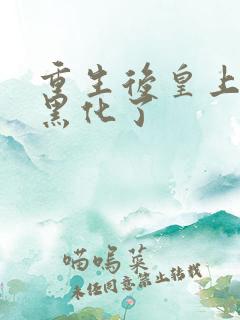 重生後皇上
黑化了
喵嗚菜
未任同意禁止轉載